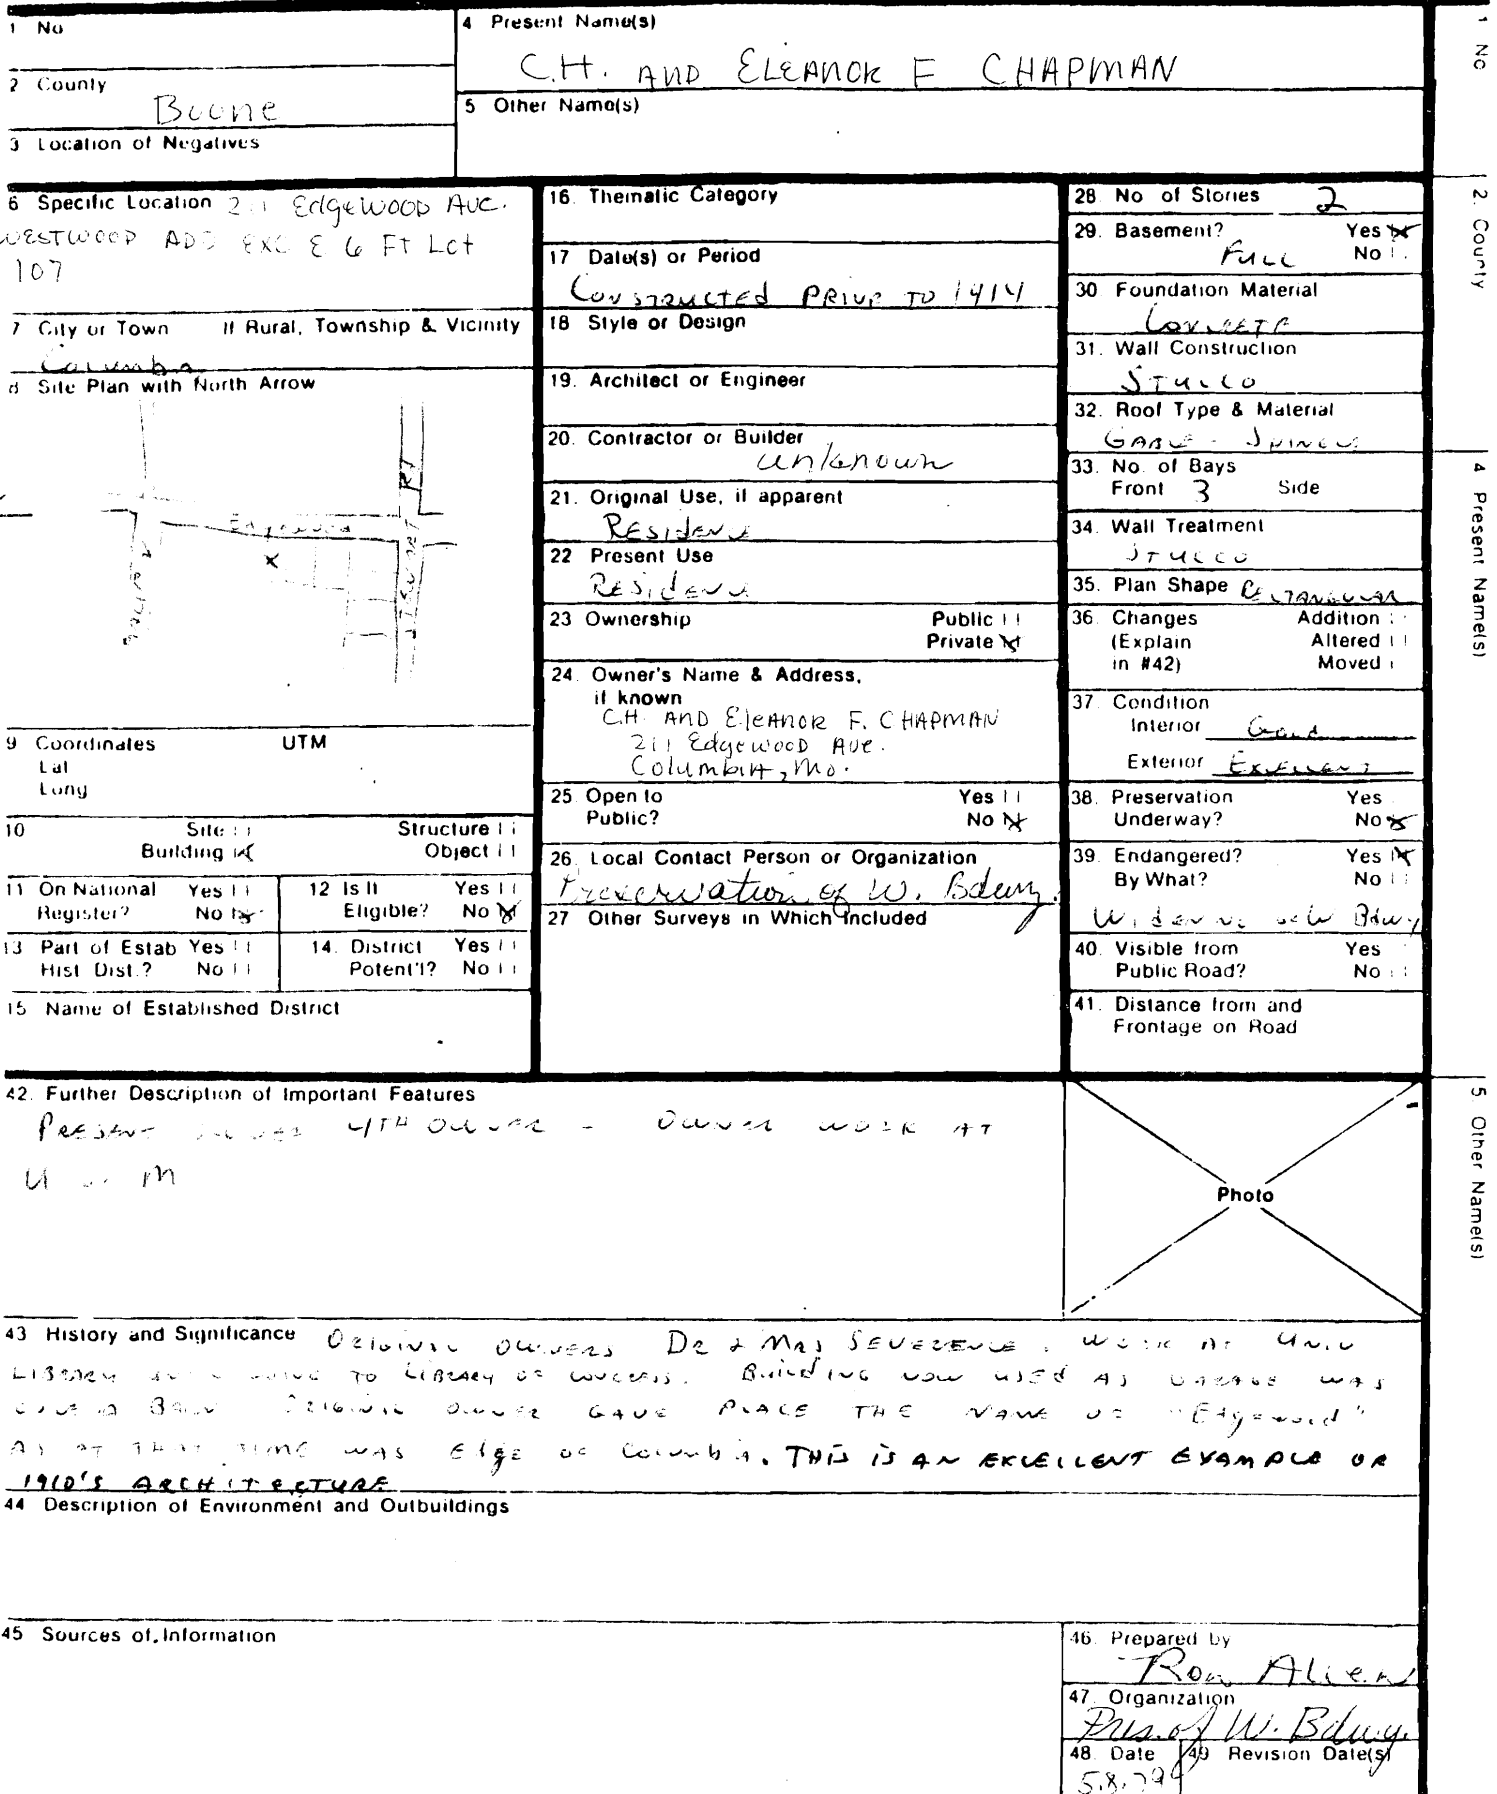 1 No
4 Present Name(s)
C.H. AND ELEANOR F CHAPMAN
2 County
Boone
5 Other Name(s)
3 Location of Negatives
6 Specific Location 211 Edgewood Ave.
WESTWOOD ADD EXC E 6 FT Lot
107
7 City or Town If Rural, Township & Vicinity
Columbia
8 Site Plan with North Arrow
Edgewood
STEWART RD
9 Coordinates UTM
Lat
Long
10 Site
Structure
Building
Object
11 On National Register? Yes No
12 Is It Eligible? Yes No
13 Part of Estab Hist. Dist.? Yes No
14. District Potent'l? Yes No
15 Name of Established District
16. Thematic Category
17 Date(s) or Period
CONSTRUCTED PRIOR TO 1914
18 Style or Design
19. Architect or Engineer
20. Contractor or Builder
unknown
21. Original Use, if apparent
RESIDENCE
22 Present Use
RESIDENCE
23 Ownership Public
Private
24. Owner's Name & Address,
if known
C.H. AND ELEANOR F. CHAPMAN
211 Edgewood Ave.
Columbia, Mo.
25. Open to Public? Yes No
26. Local Contact Person or Organization
Preservation of W. Bdwy.
27 Other Surveys in Which Included
28 No of Stories 2
29. Basement? Yes
FULL No
30 Foundation Material
CONCRETE
31. Wall Construction
STUCCO
32. Roof Type & Material
GABLE - SHINGLE
33. No. of Bays
Front 3 Side
34. Wall Treatment
STUCCO
35. Plan Shape RECTANGULAR
36. Changes Addition
(Explain Altered
in #42) Moved
37. Condition
Interior Good
Exterior EXCELLENT
38. Preservation Yes
Underway? No
39. Endangered? Yes
By What? No
Widening of W Bdwy
40. Visible from Yes
Public Road? No
41. Distance from and
Frontage on Road
42. Further Description of Important Features
PRESENT OWNER 4TH OWNER - OWNER WORK AT
U of M
Photo
43 History and Significance ORIGINAL OWNERS DR & MRS SEVERENCE. WORK AT UNIV
LIBRARY TO LIBRARY OF CONGRESS. Building NOW USED AS GARAGE WAS
ONCE A BARN ORIGINAL OWNER GAVE PLACE THE NAME OF "Edgewood"
AS AT THAT TIME WAS EDGE OF Columbia. THIS IS AN EXCELLENT EXAMPLE OR
1910'S ARCHITECTURE
44 Description of Environment and Outbuildings
45 Sources of Information
46. Prepared by
Ron Allen
47. Organization
Pres. of W. Bdwy.
48. Date 49 Revision Date(s)
5.8.79
1 No
2. County
4 Present Name(s)
5. Other Name(s)